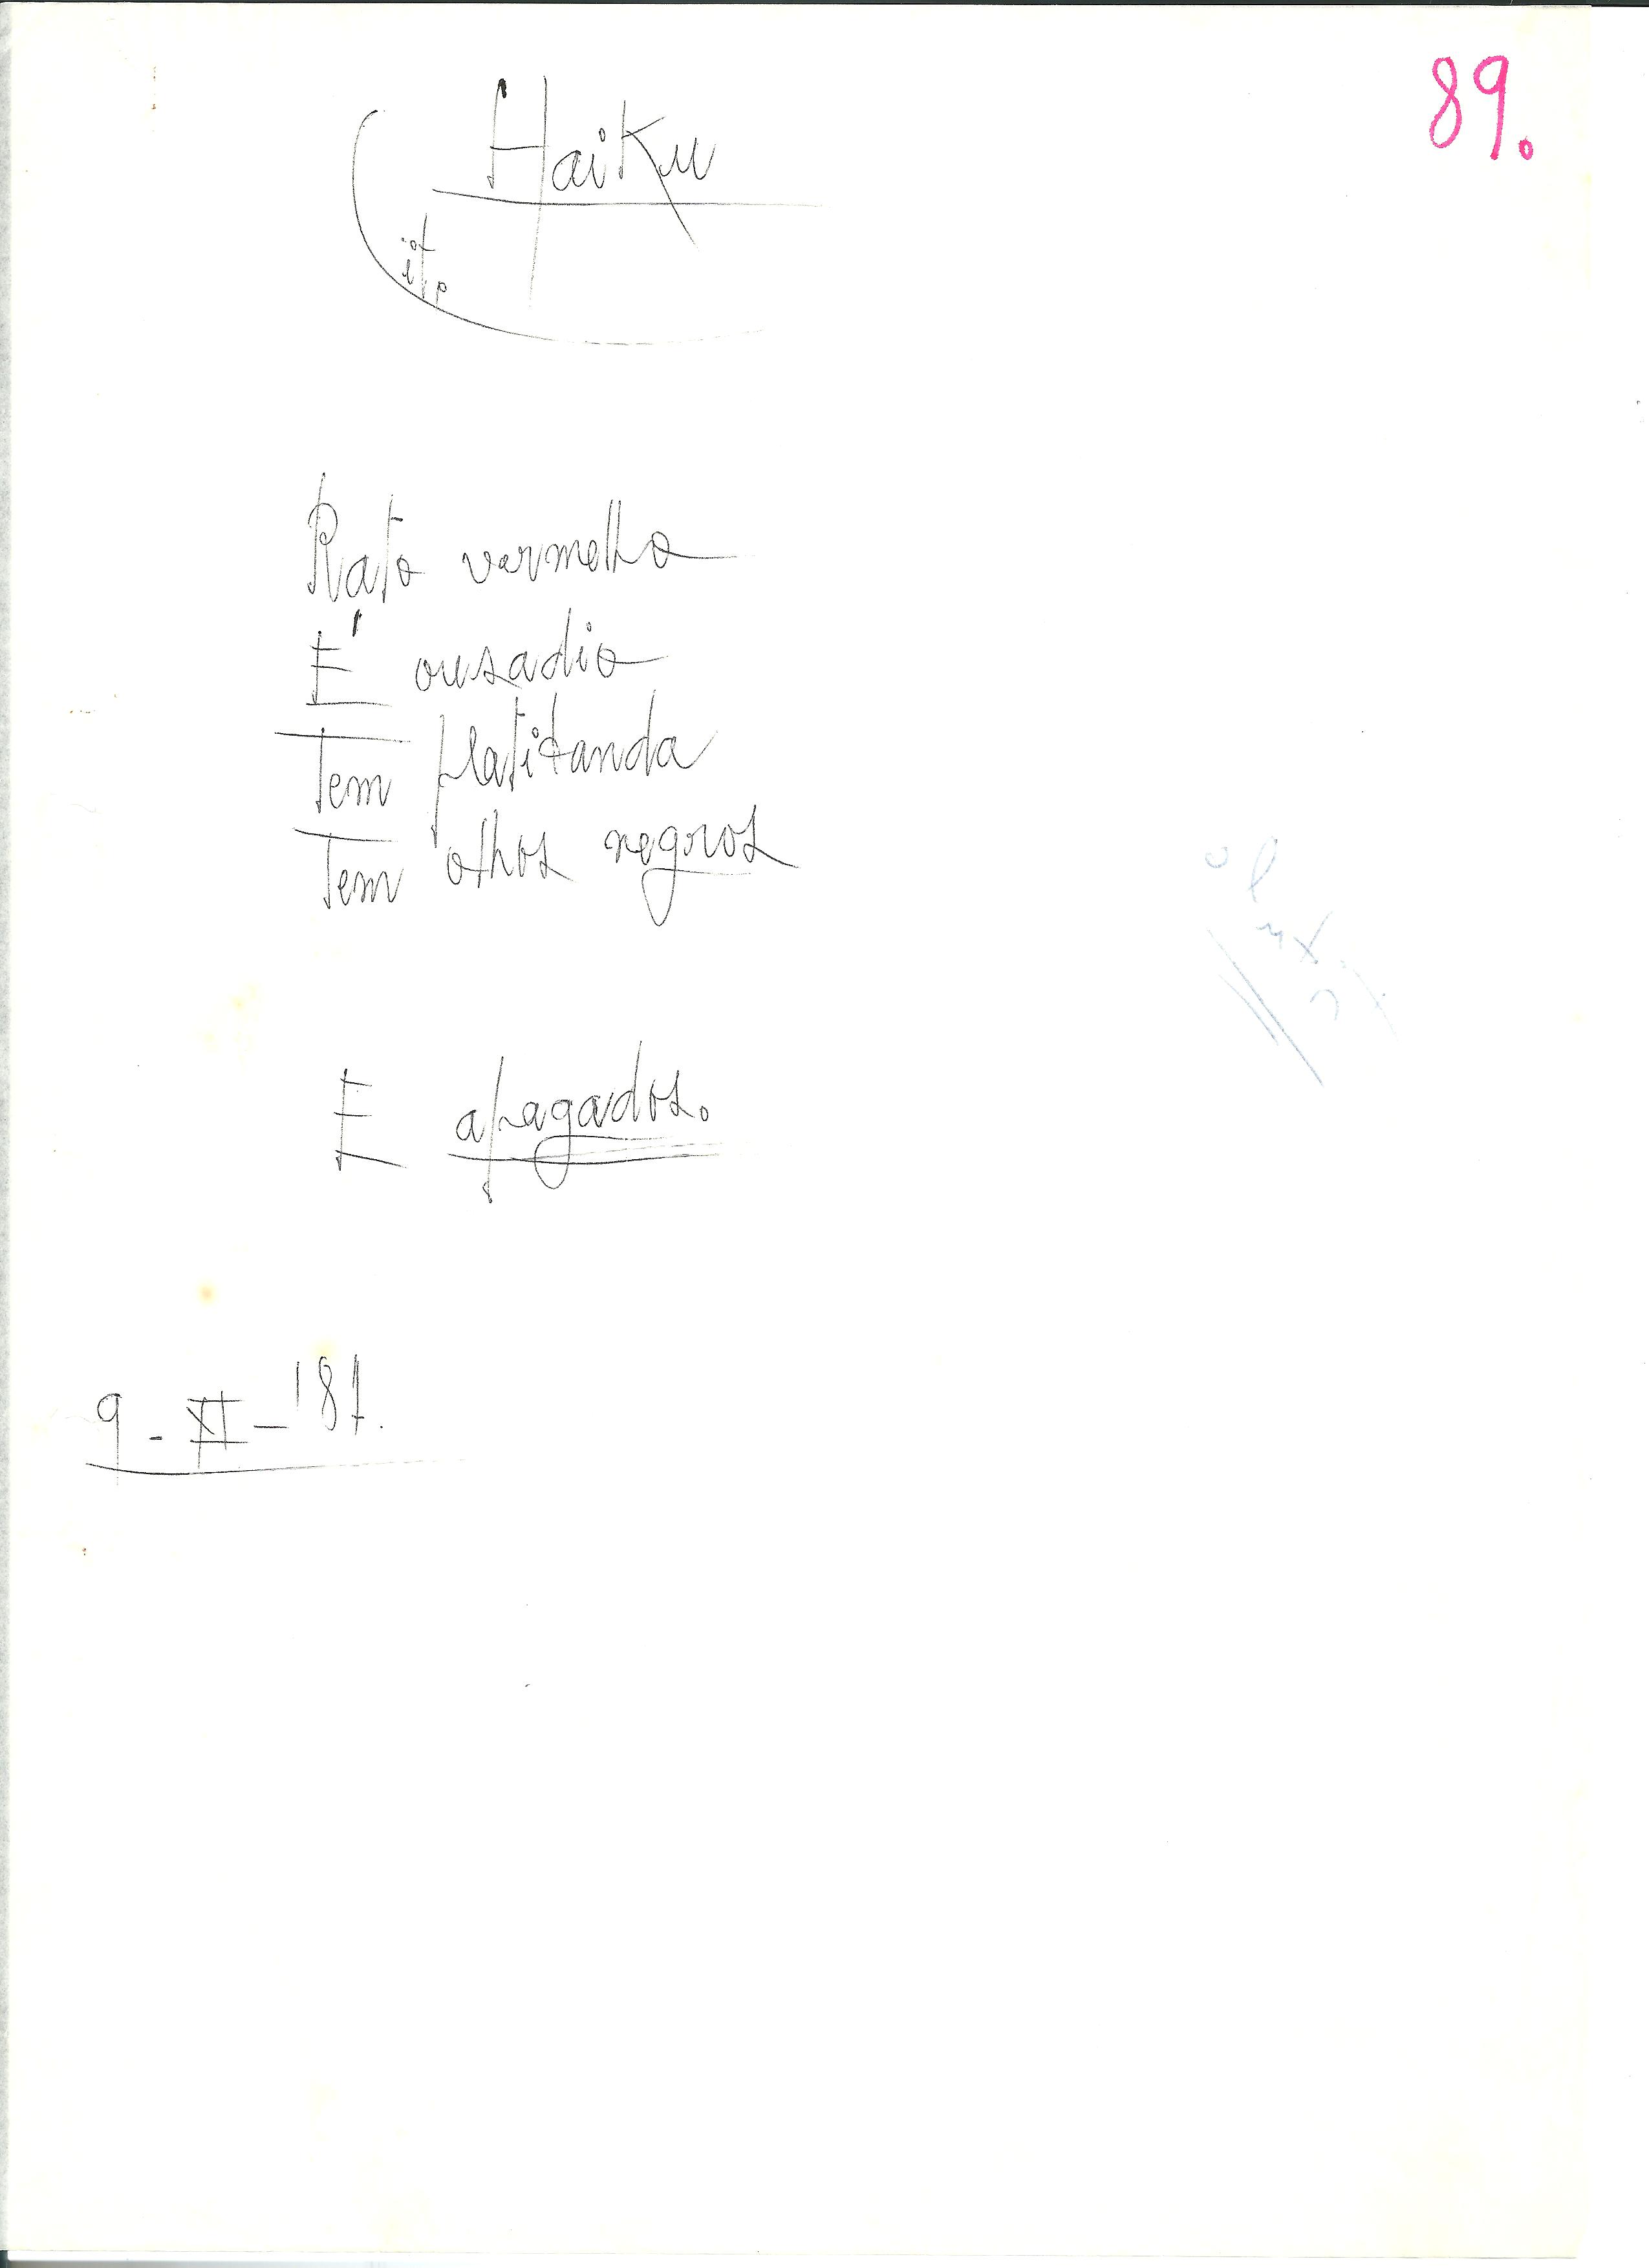 89.
Haiku
Rato vermelho
É ousadio
Tem
Tem olhos negros
E apagados.
9-XI-'87.